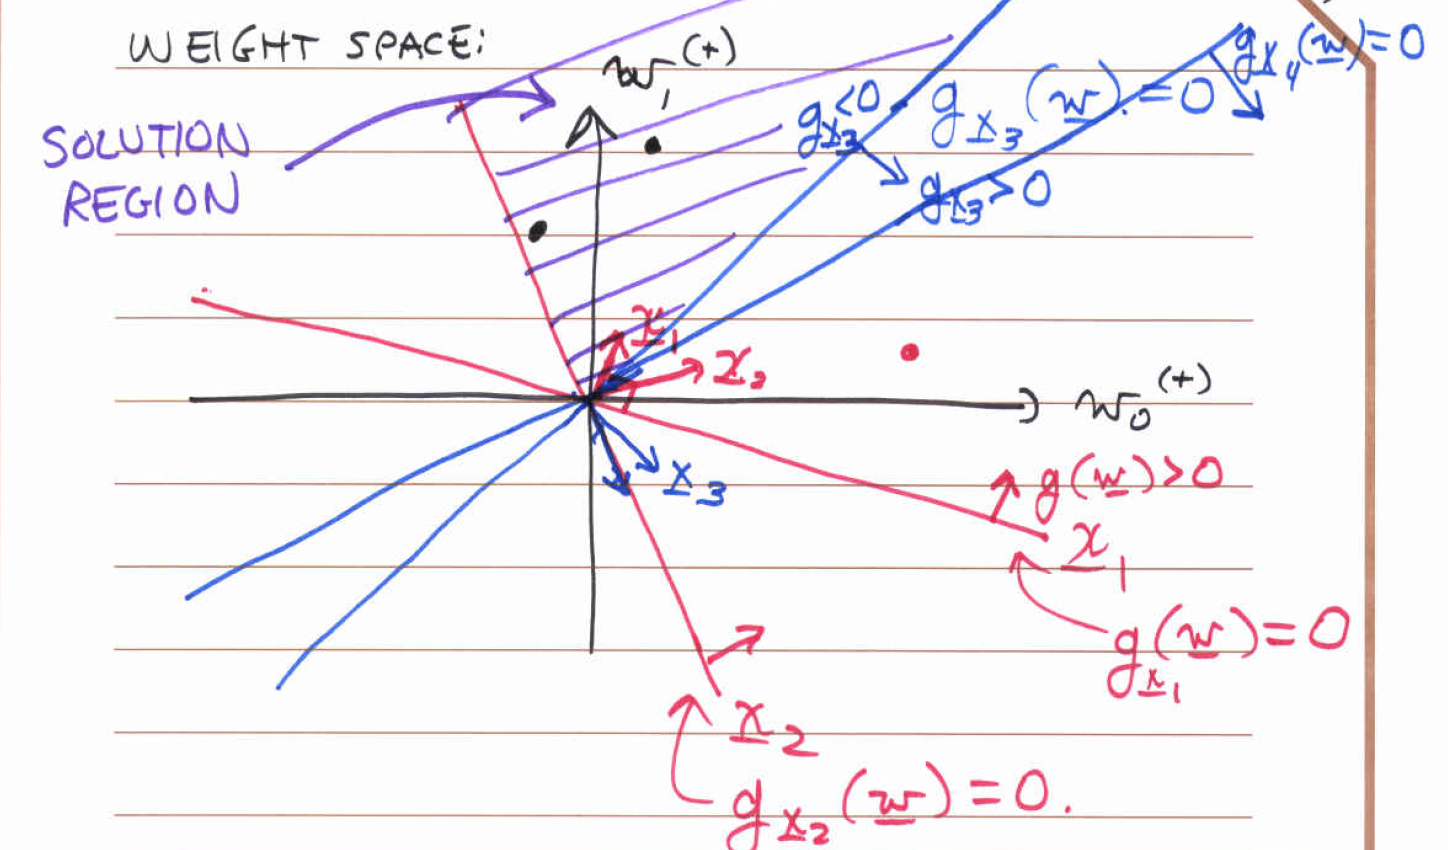 WEIGHT SPACE:
w₁⁽⁺⁾
SOLUTION
REGION
g_x₃<0
g_x₃(w)=0
g_x₄(w)=0
g_x₃>0
x₁
x₂
w₀⁽⁺⁾
x₃
g(w)>0
x₁
g_x₁(w)=0
x₂
g_x₂(w)=0.